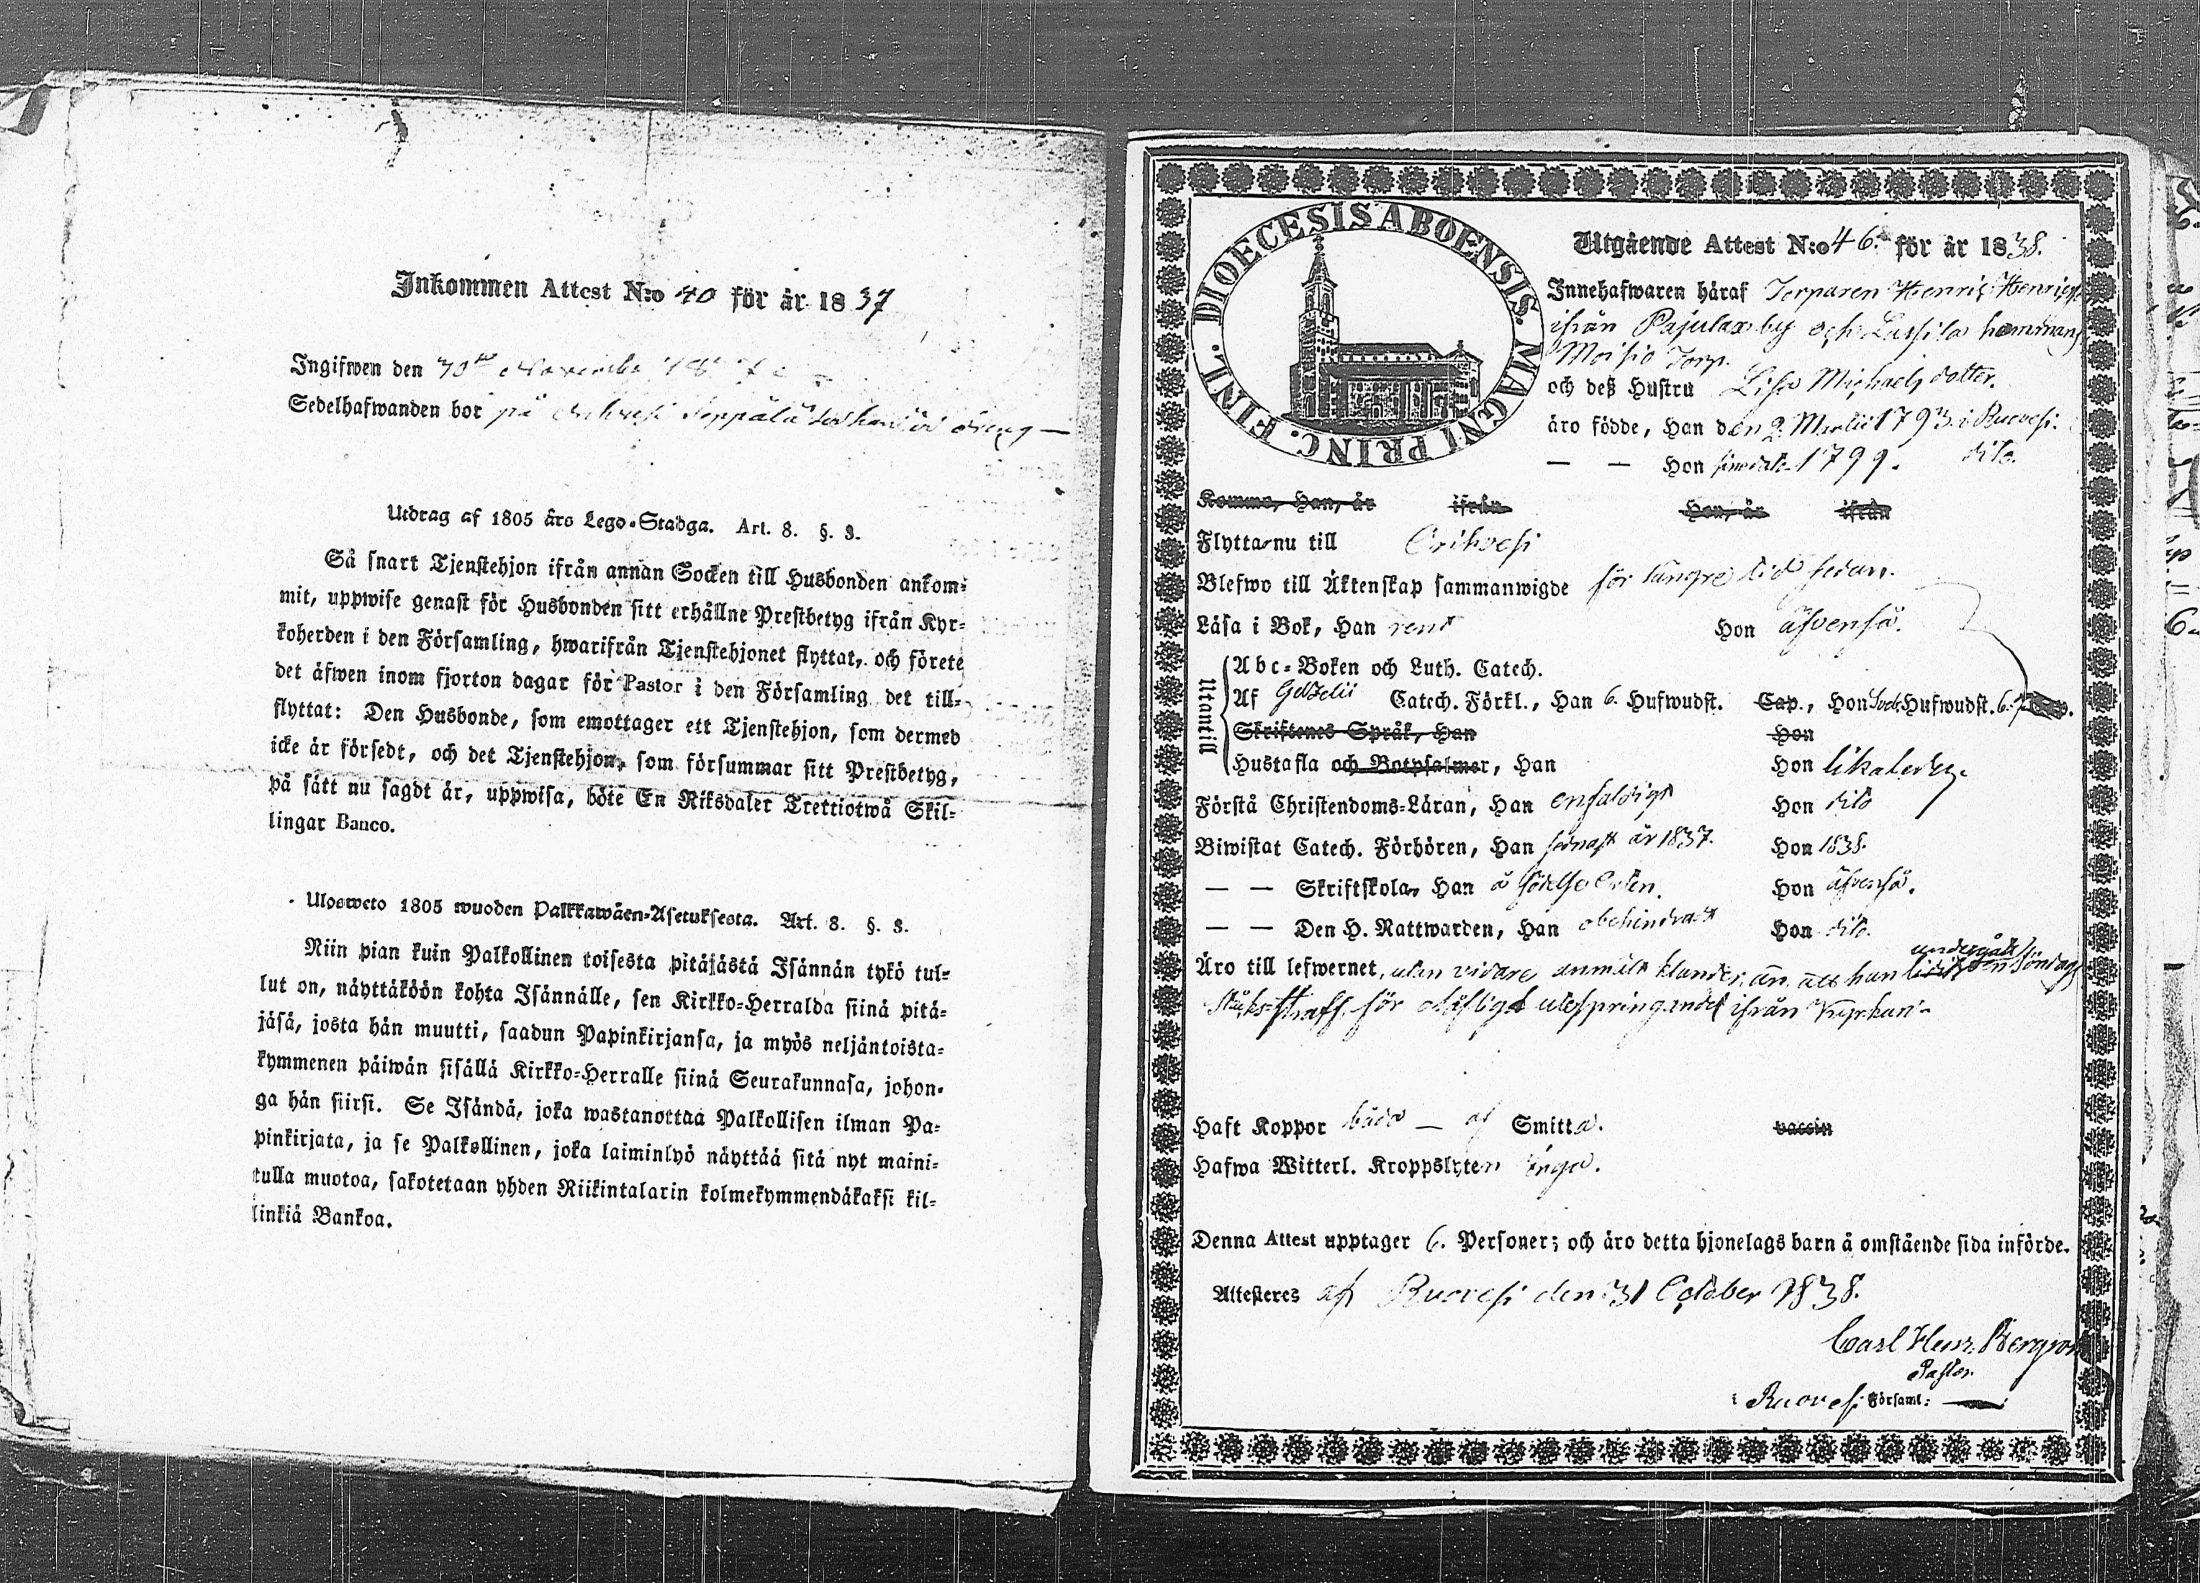 Inkommen Attest N:o 40 för år 1837
Ingifwen den 30de November 18
Sedelhafwanden bor på Orihvesi Seppälä
Utdrag af 1805 års Lego-Stadga. Art. 8. §. 3.
Så snart Tjenstehjon ifrån annan Socken till Husbonden ankom-
mit, uppwise genast för Husbonden sitt erhållne Prestbetyg ifrån Kyr-
koherden i den Församling, hwarifrån Tjenstehjonet flyttat, och förete
det äfwen inom fjorton dagar för Pastor i den Församling det till-
flyttat: Den Husbonde, som emottager ett Tjenstehjon, som dermed
icke är försedt, och det Tjenstehjon, som försummar sitt Prestbetyg,
på sätt nu sagdt är, uppwisa, böte En Riksdaler Trettiotwå Skil-
lingar Banco.
Ulosweto 1805 wuoden Palkkawäen-Asetuksesta. Art. 8. §. 3.
Niin pian kuin Palkollinen toisesta pitäjästä Isännän tykö tul-
lut on, näyttäköön kohta Isännälle, sen Kirkko-Herralda siinä pitä-
jäsä, josta hän muutti, saadun Papinkirjansa, ja myös neljäntoista-
kymmenen päiwän sisällä Kirkko-Herralle siinä Seurakunnasa, johon-
ga hän siirsi. Se Isändä, joka wastanottaa Palkollisen ilman Pa-
pinkirjata, ja se Palkollinen, joka laiminlyö näyttää sitä nyt maini-
tulla muotoa, sakotetaan yhden Riikintalarin kolmekymmendäkaksi kil-
linkiä Bankoa.
DIOECESIS ABOENSIS. MAGNI PRINC. FINL.
Utgående Attest N:o 46. för år 1838.
Innehafwaren häraf Torparen Henric Henricss
ifrån Pajulax by och Lassila hemmans
Moisio Torp.
och deß Hustru Lisa Michaelsdotter.
äro födde, Han den 2 Martii 1793. i Ruovesi.
— — Hon 1799. dito.
Komma, Han, år ifrån Hon, år ifrån
Flytta nu till Orihvesi
Blefwo till Äktenskap sammanwigde för längre tid sedan.
Läsa i Bok, Han rent Hon äfvenså.
Utantill
Abc-Boken och Luth. Catech.
Af Gezelii Catech. Förkl., Han 6. Hufwudst. Cap., Hon Hufwudst. 6.
Skriftenes Språk, Han Hon
Hustafla och Botpsalmer, Han Hon likaledes.
Förstå Christendoms-Läran, Han enfaldigt Hon dito
Biwistat Catech. Förhören, Han sednast år 1837. Hon 1838.
— — Skriftskolan Han å födelseorten. Hon äfvenså.
— — Den H. Nattwarden, Han obehindradt Hon dito.
undergått
Äro till lefwernet, utan vidare anmält klander, än att han lidit en Söndags
Stocks-straff för utspringandet ifrån Kyrkan.
Haft Koppor båda — af Smitta. vaccin
Hafwa Witterl. Kroppslyten inga.
Denna Attest upptager 6. Personer; och äro detta hjonelags barn å omstående sida införde.
Attesteres af Ruovesi den 31 October 1838.
Carl Henr. Bergroth
Pastor
i Ruovesi Församl: